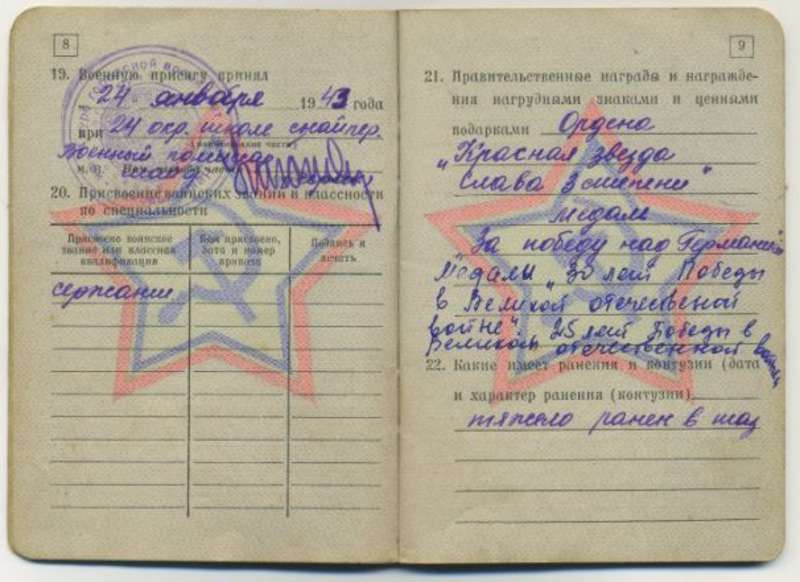 8
19. Военную присягу принял
24 января 1943 года
при 24 окр. школе снайпер.
(наименование части)
Военный
м. п.
20. Присвоение воинских званий и классности
по специальности
Присвоено воинское звание или классная квалификация
Кем присвоено, дата и номер приказа
Подпись и печать
сержант
9
21. Правительственные награды и награжде-
ния нагрудными знаками и ценными
подарками Ордена
„Красная звезда
Слава 3 степени"
медали
За победу над Германией
Медалы „30 лет Победы
в Великой отечественой
войне". 25 лет Победы в
Великой отечественной войне
22. Какие имеет ранения и контузии (дата
и характер ранения (контузии)
тяжело ранен в таз